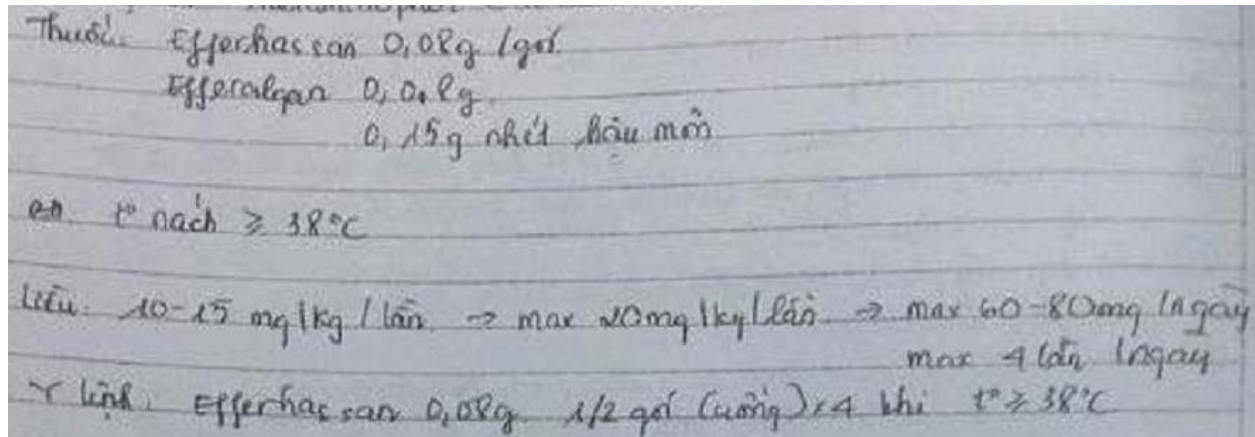 Thuốc: Efferhassan 0,08g /gói.
Efferalgan 0,0.8g.
0,15g nhét hậu môn
t° nách ≥ 38°C
Liều: 10-15 mg/kg/lần → max 20mg/kg/lần → max 60-80mg/ngày
max 4 lần/ngày
Y lệnh: Efferhassan 0,08g 1/2 gói (uống) x4 khi t° ≥ 38°C